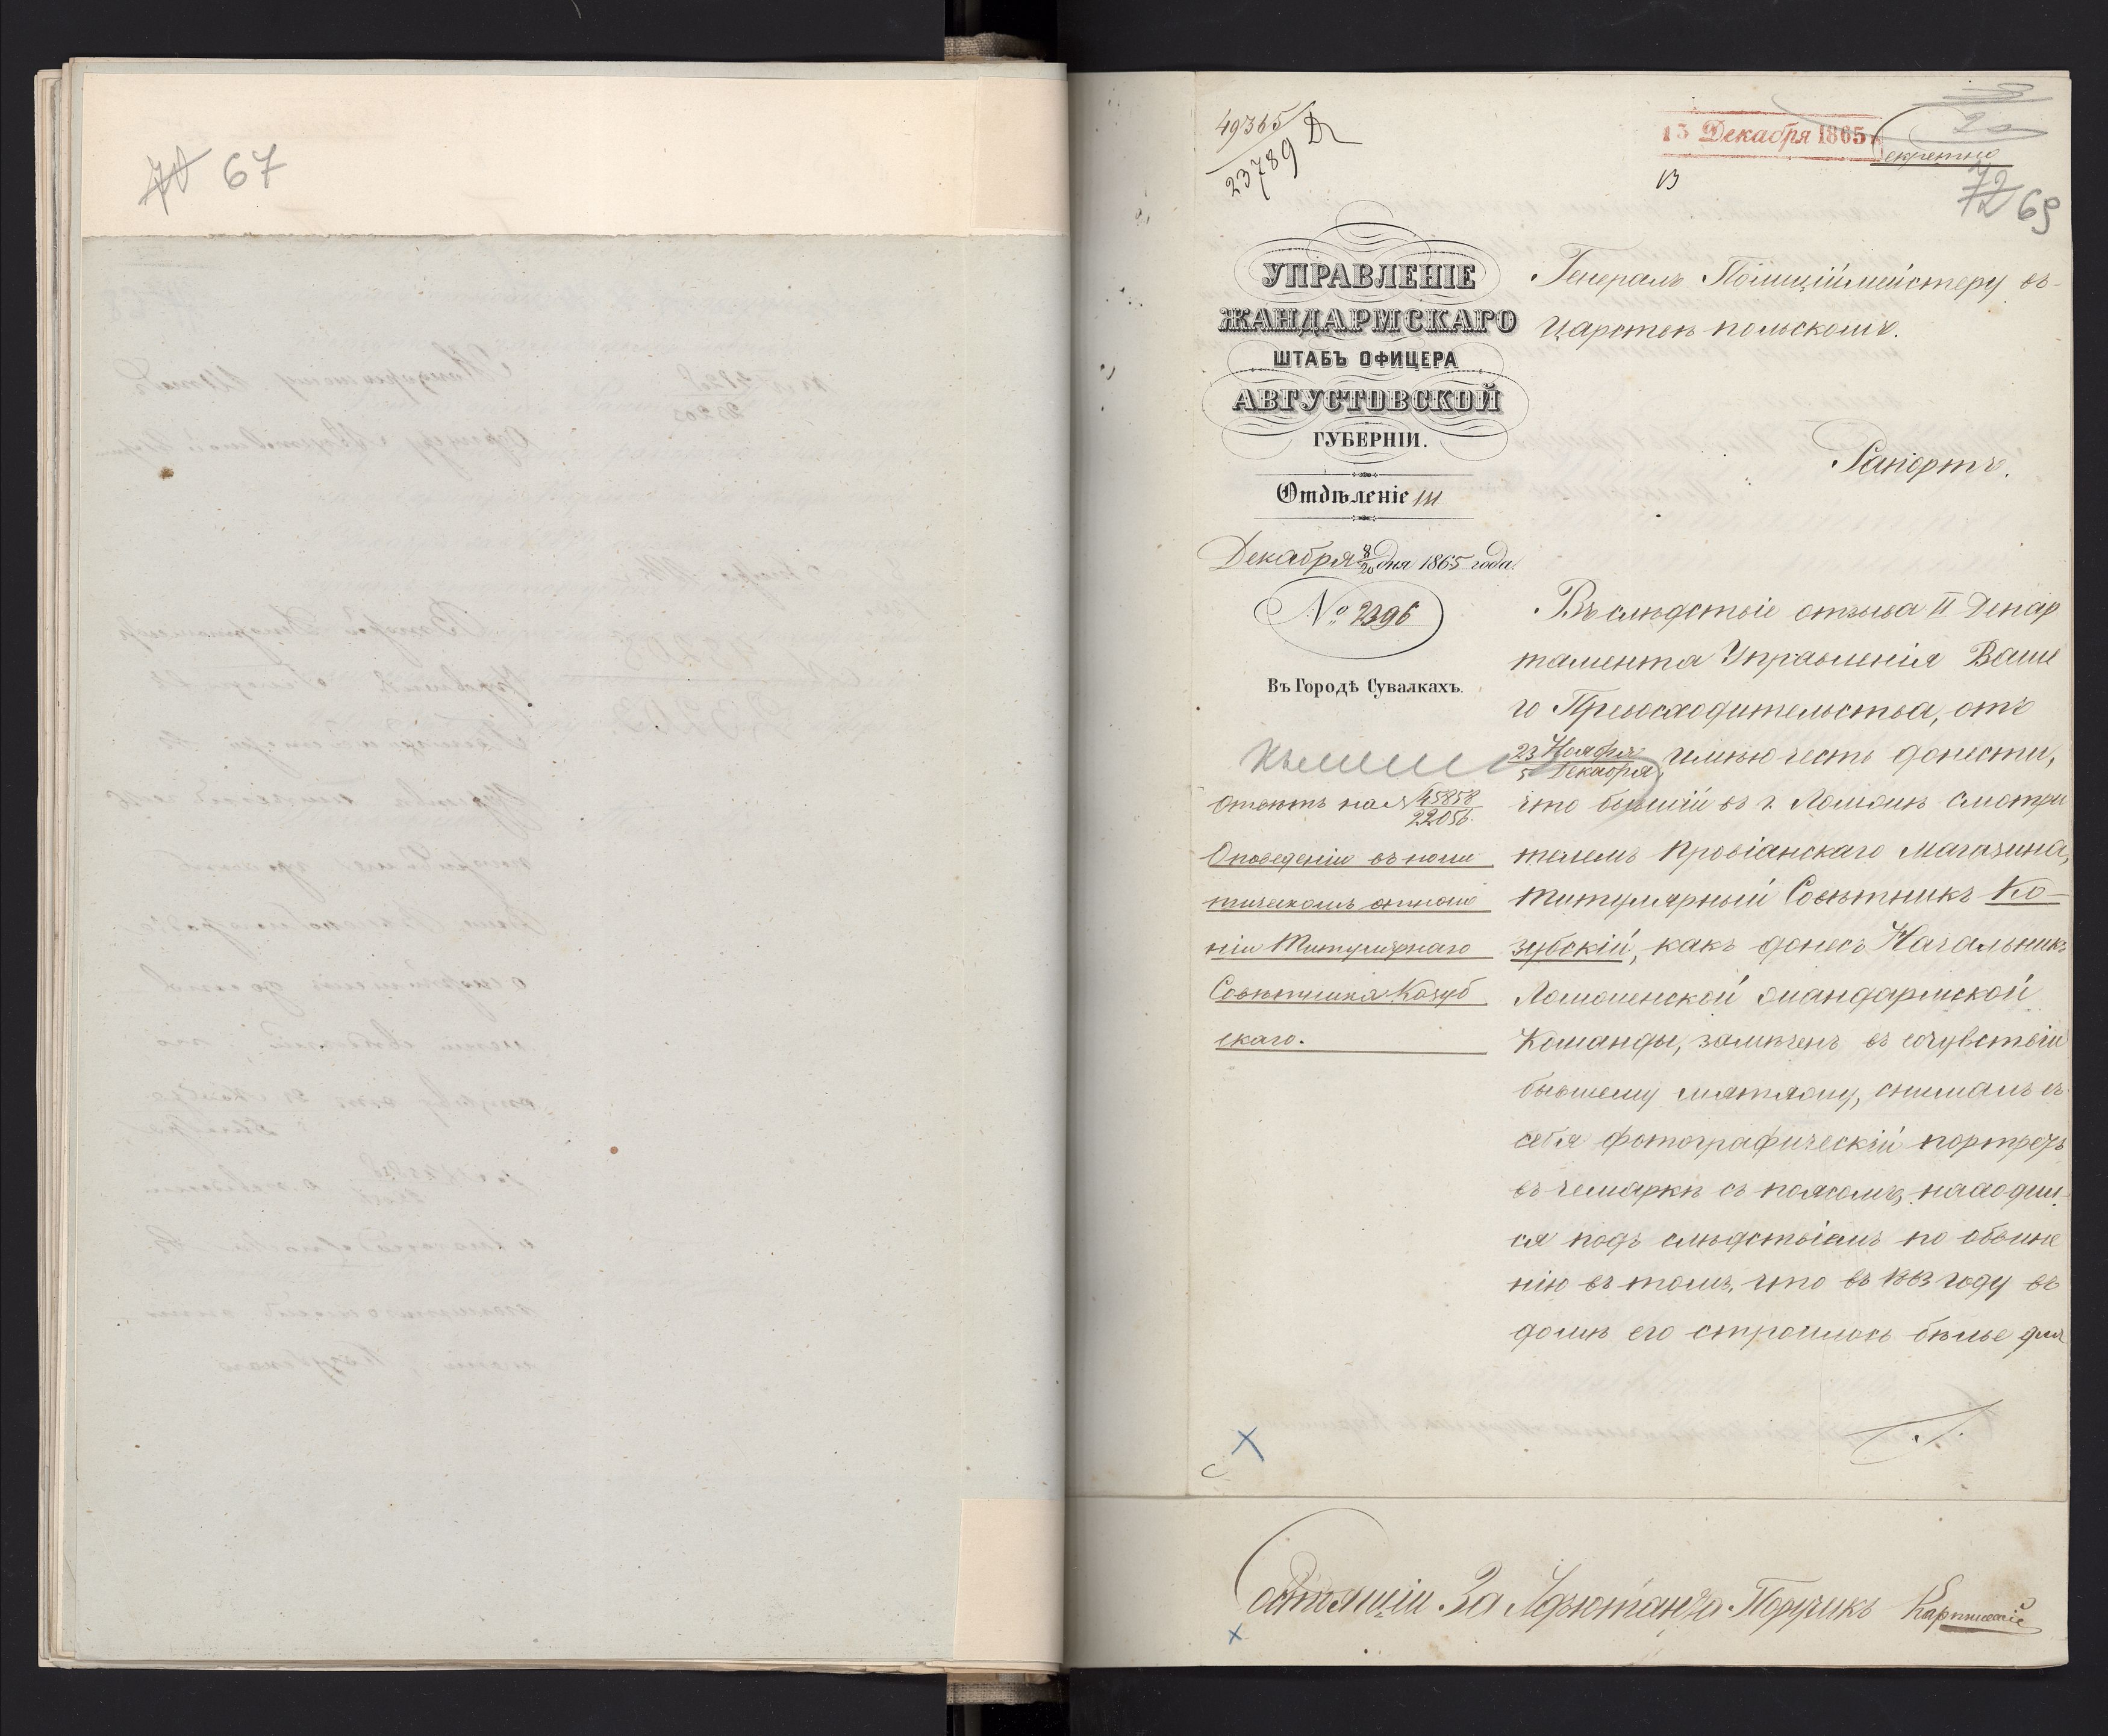 67
49365
23789
13 Декабря 1865
13
Секретно
72 69
УПРАВЛЕНІЕ
ЖАНДАРМСКАГО
ШТАБЪ ОФИЦЕРА
АВГУСТОВСКОЙ
ГУБЕРНІИ.
Отдѣленіе III
Декабря 8/20 дня 1865 года.
№ 2396
Въ Городѣ Сувалкахъ.
Отвѣтъ на № 45858
22056.
О поведеніи въ поли
тическомъ отноше
ніи Титулярнаго
Совѣтника Козуб
скаго.
Генералъ Полиціймейстеру въ
Царствѣ польскомъ.
Рапортъ.
Въ слѣдствіе отзыва II Депар
тамента Управленія Ваше
го Превосходительства, отъ
23 Ноября
5 Декабря, имѣю честь донести,
что бывшій въ г. Ломжѣ смотри
телемъ провіанскаго магазина,
титулярный Совѣтникъ Ко
зубскій, какъ донесъ Начальникъ
Ломженской жандармской
Команды, замѣченъ въ сочувствіи
бывшему мятежу, снималъ съ
себя фотографическій портретъ
въ чемаркѣ съ поясомъ, находил
ся подъ слѣдствіемъ по обвине
нію въ томъ, что въ 1863 году въ
домѣ его строилось бѣлье для
За Адъютанта Поручикъ